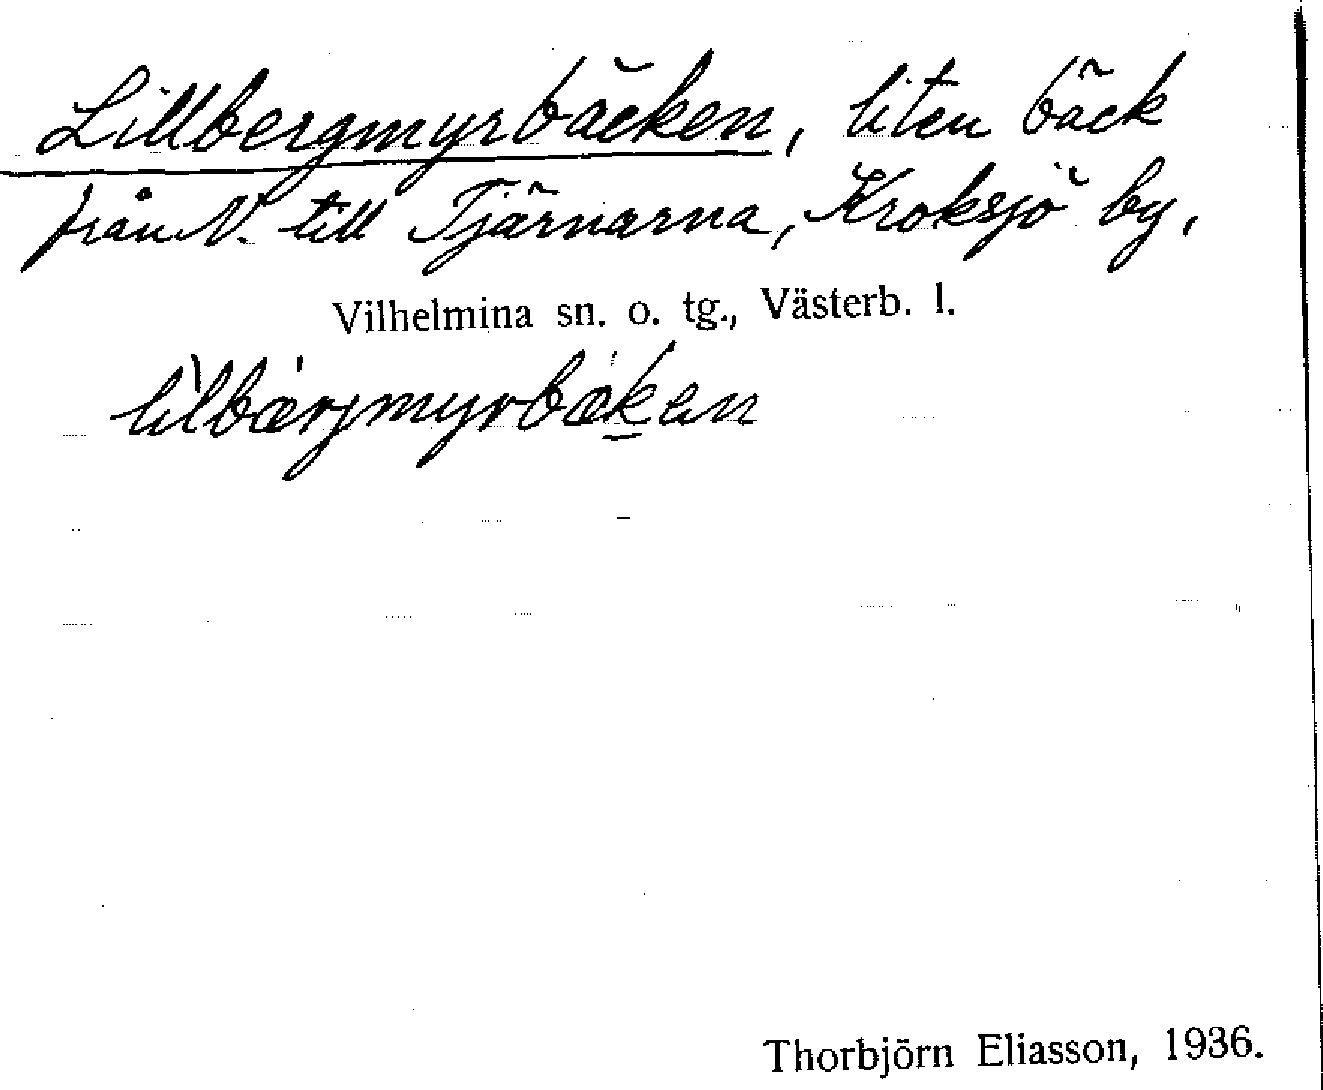 Lillbergmyrbäcken, liten bäck
från N. till Tjärnarna, Kroksjö by,
Vilhelmina sn. o. tg., Västerb. l.
lìlbærjmyrbækan
Thorbjörn Eliasson, 1936.